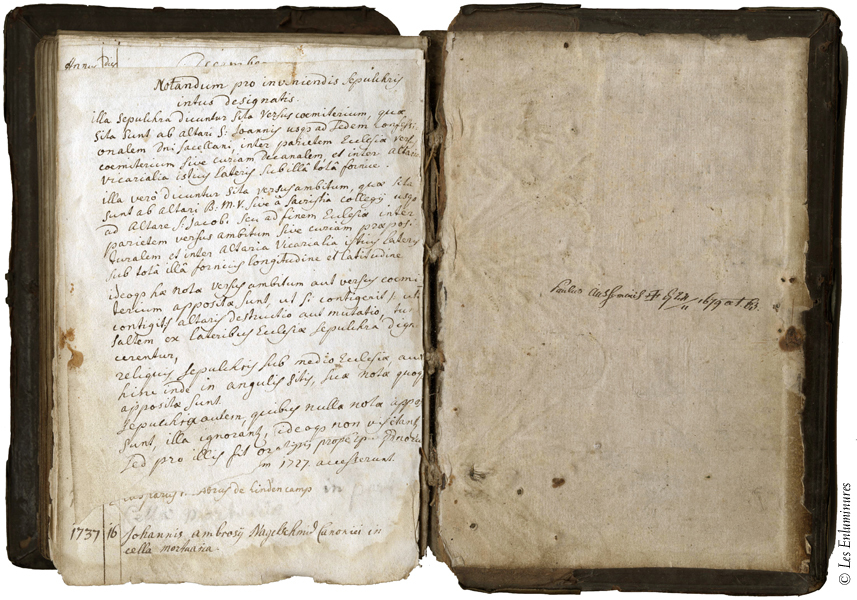 Anno Dies December
Notandum pro inveniendis sepulchris
intus designatis.
illa sepulchra dicuntur sita versus coemiterium, quæ
sita sunt ab altari S: Joannis usq ad sedem confessi-
onalem Dni sacellani, inter parietem Ecclesiæ versus
coemiterium sive curiam decanalem, et inter altaria
vicarialia istius lateris sub illâ totâ fornice.
illa vero dicuntur sita versus ambitum, quæ sita
sunt ab altari B: M. V. sive â sacristia collegij usq
ad Altare S: Jacobi seu ad finem Ecclesiæ inter
parietem versus ambitum sive curiam præposi-
turalem et inter Altaria Vicarialia istius lateris
sub totâ illâ fornicis longitudine et latitudine.
ideoq hæ notæ versus ambitum aut versus coemi-
terium appositæ sunt, ut si contigerit, uti
contigit altaris destructio aut mutatio,
saltem ex lateribus Ecclesiæ sepulchra digno-
cerentur,
reliquis sepulchris sub medio Ecclesiæ aut
hinc inde in angulis sitis, suæ notæ quoq
appositæ sunt.
sepulchra autem, quibus nulla nota appo
sunt, illa ignorant, ideoq non visitant,
sed pro illis fit
in 1727 accesserunt
de Lindencamp in
1737 16 Johannis Ambrosij Nagelschmid Canonici in
cella mortuaria.
Paulus 1679
© Les Enluminures